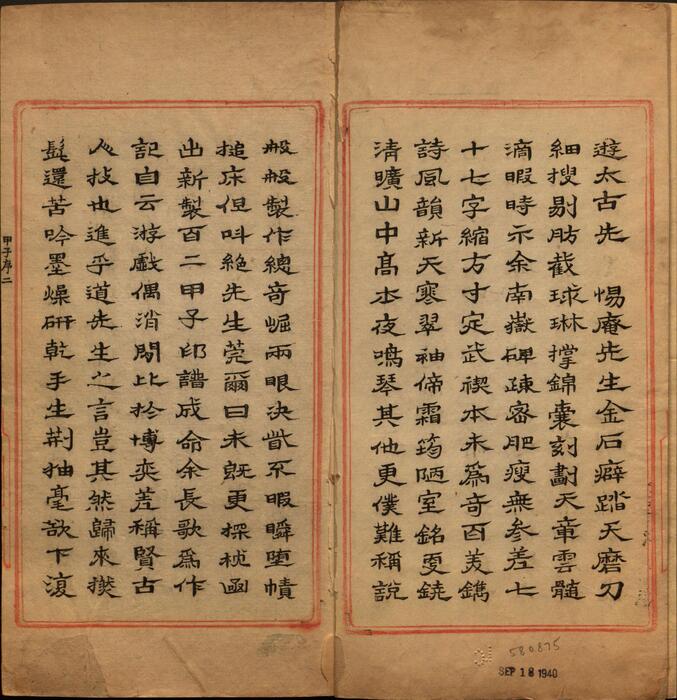 遊太古先　惕庵先生金石癖踏天磨刀
細搜剔肪截球琳撐錦囊刻劃天章雲髓
滴暇時示余南嶽碑疎密肥瘦無參差七
十七字縮方寸定武禊本未爲奇百美鐫
詩風韻新天寒翠袖倚霜筠陋室銘更鐃
清曠山中髙士夜鳴琴其他更僕難稱說
般般製作總奇崛兩眼決眥不暇瞬墮幘
搥床但叫絕先生莞爾曰未既更探枕函
出新製百二甲子印譜成命余長歌爲作
記自云游戲偶消閒比於博奕差稱賢古
人技也進乎道先生之言豈其然歸來撚
髭還苦吟墨燥硏乾手生荆抽毫欲下復
甲子序二
580875
SEP 18 1940